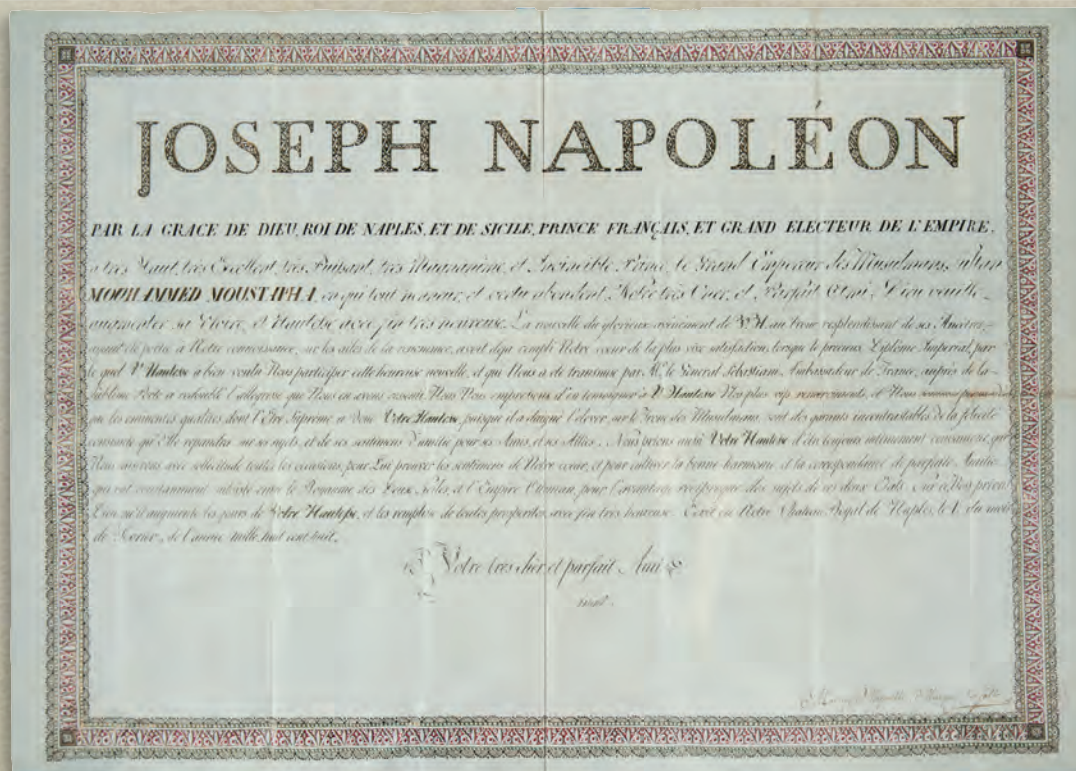 JOSEPH NAPOLÉON
PAR LA GRACE DE DIEU, ROI DE NAPLES, ET DE SICILE, PRINCE FRANÇAIS, ET GRAND ELECTEUR DE L'EMPIRE,
a très Haut, très Excellent, très Puissant, très Magnanime, et Invincible Prince, le Grand Empereur des Musulmans, Sultan
MOUHAMMED MOUSTAPHA, en qui tout honneur, et vertu abondent, Notre très Cher, et Parfait Ami; Dieu veuille
augmenter sa Gloire, et Hautesse avec fin très heureuse. La nouvelle du glorieux avénement de V. H. au trone resplendissant de ses Ancêtres,
ayant été portée à Notre connoissance, sur les ailes de la renommée, avoit deja rempli Notre cœur de la plus vive satisfaction, lorsque le précieux Diplome Imperial, par
le quel V.e Hautesse a bien voulu Nous participer cette heureuse nouvelle, et qui Nous a été transmis par M.r le General Sebastiani, Ambassadeur de France, auprès de la
Sublime Porte a redoublé l'allegresse que Nous en avons ressenti. Nous Nous empressons d'en temoigner à V.e Hautesse Nos plus vifs remerciments, et Nous sommes
que les eminentes qualités dont l'Etre Suprême a doué Votre Hautesse, puisque il a daigné l'élever, sur le Trone des Musulmans, sont des garants incontestables de la felicité
constante qu'Elle repandra sur ses sujets, et de ses sentimens d'amitié pour ses Amis, et ses Alliés. Nous prions aussi Votre Hautesse d'être toujours intimement convaincue, que
Nous saisirons avec sollicitude toutes les occasions, pour Lui prouver les sentimens de Notre cœur, et pour cultiver la bonne harmonie, et la correspondance de parfaite Amitié
qui ont constamment subsisté entre le Royaume des Deux Siciles, et l'Empire Ottoman, pour l'avantage réciproque des sujets de ces deux Etats. Sur ce Nous prions
Dieu qu'il augmente les jours de Votre Hautesse, et les remplisse de toutes prosperités avec fin très heureuse. Ecrit en Notre Chateau Royal de Naples, le V. du mois
de Fevrier, de l'année mille huit cent huit.
Votre très cher et parfait Ami